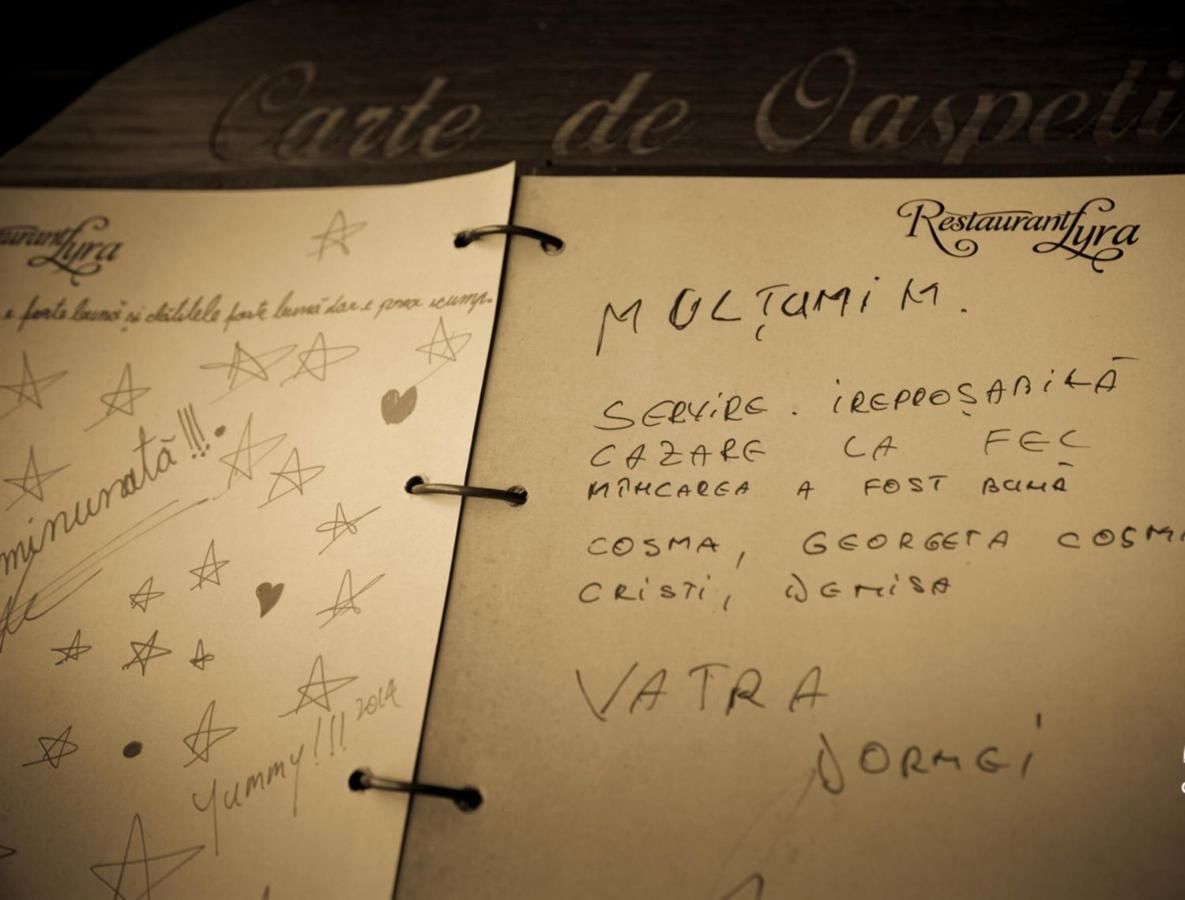 Carte de Oaspeti
Restaurant Lyra
e forte bună și clătitele forte bună dar e prea scump.
minunată !!!
Yummy!!! 2014
Restaurant Lyra
MULȚUMIM.
SERVIRE. IREPROȘABILĂ
CAZARE LA FEL
MÎNCAREA A FOST BUNĂ
COSMA, GEORGETA COSM
CRISTI, DENISA
VATRA
DORNEI